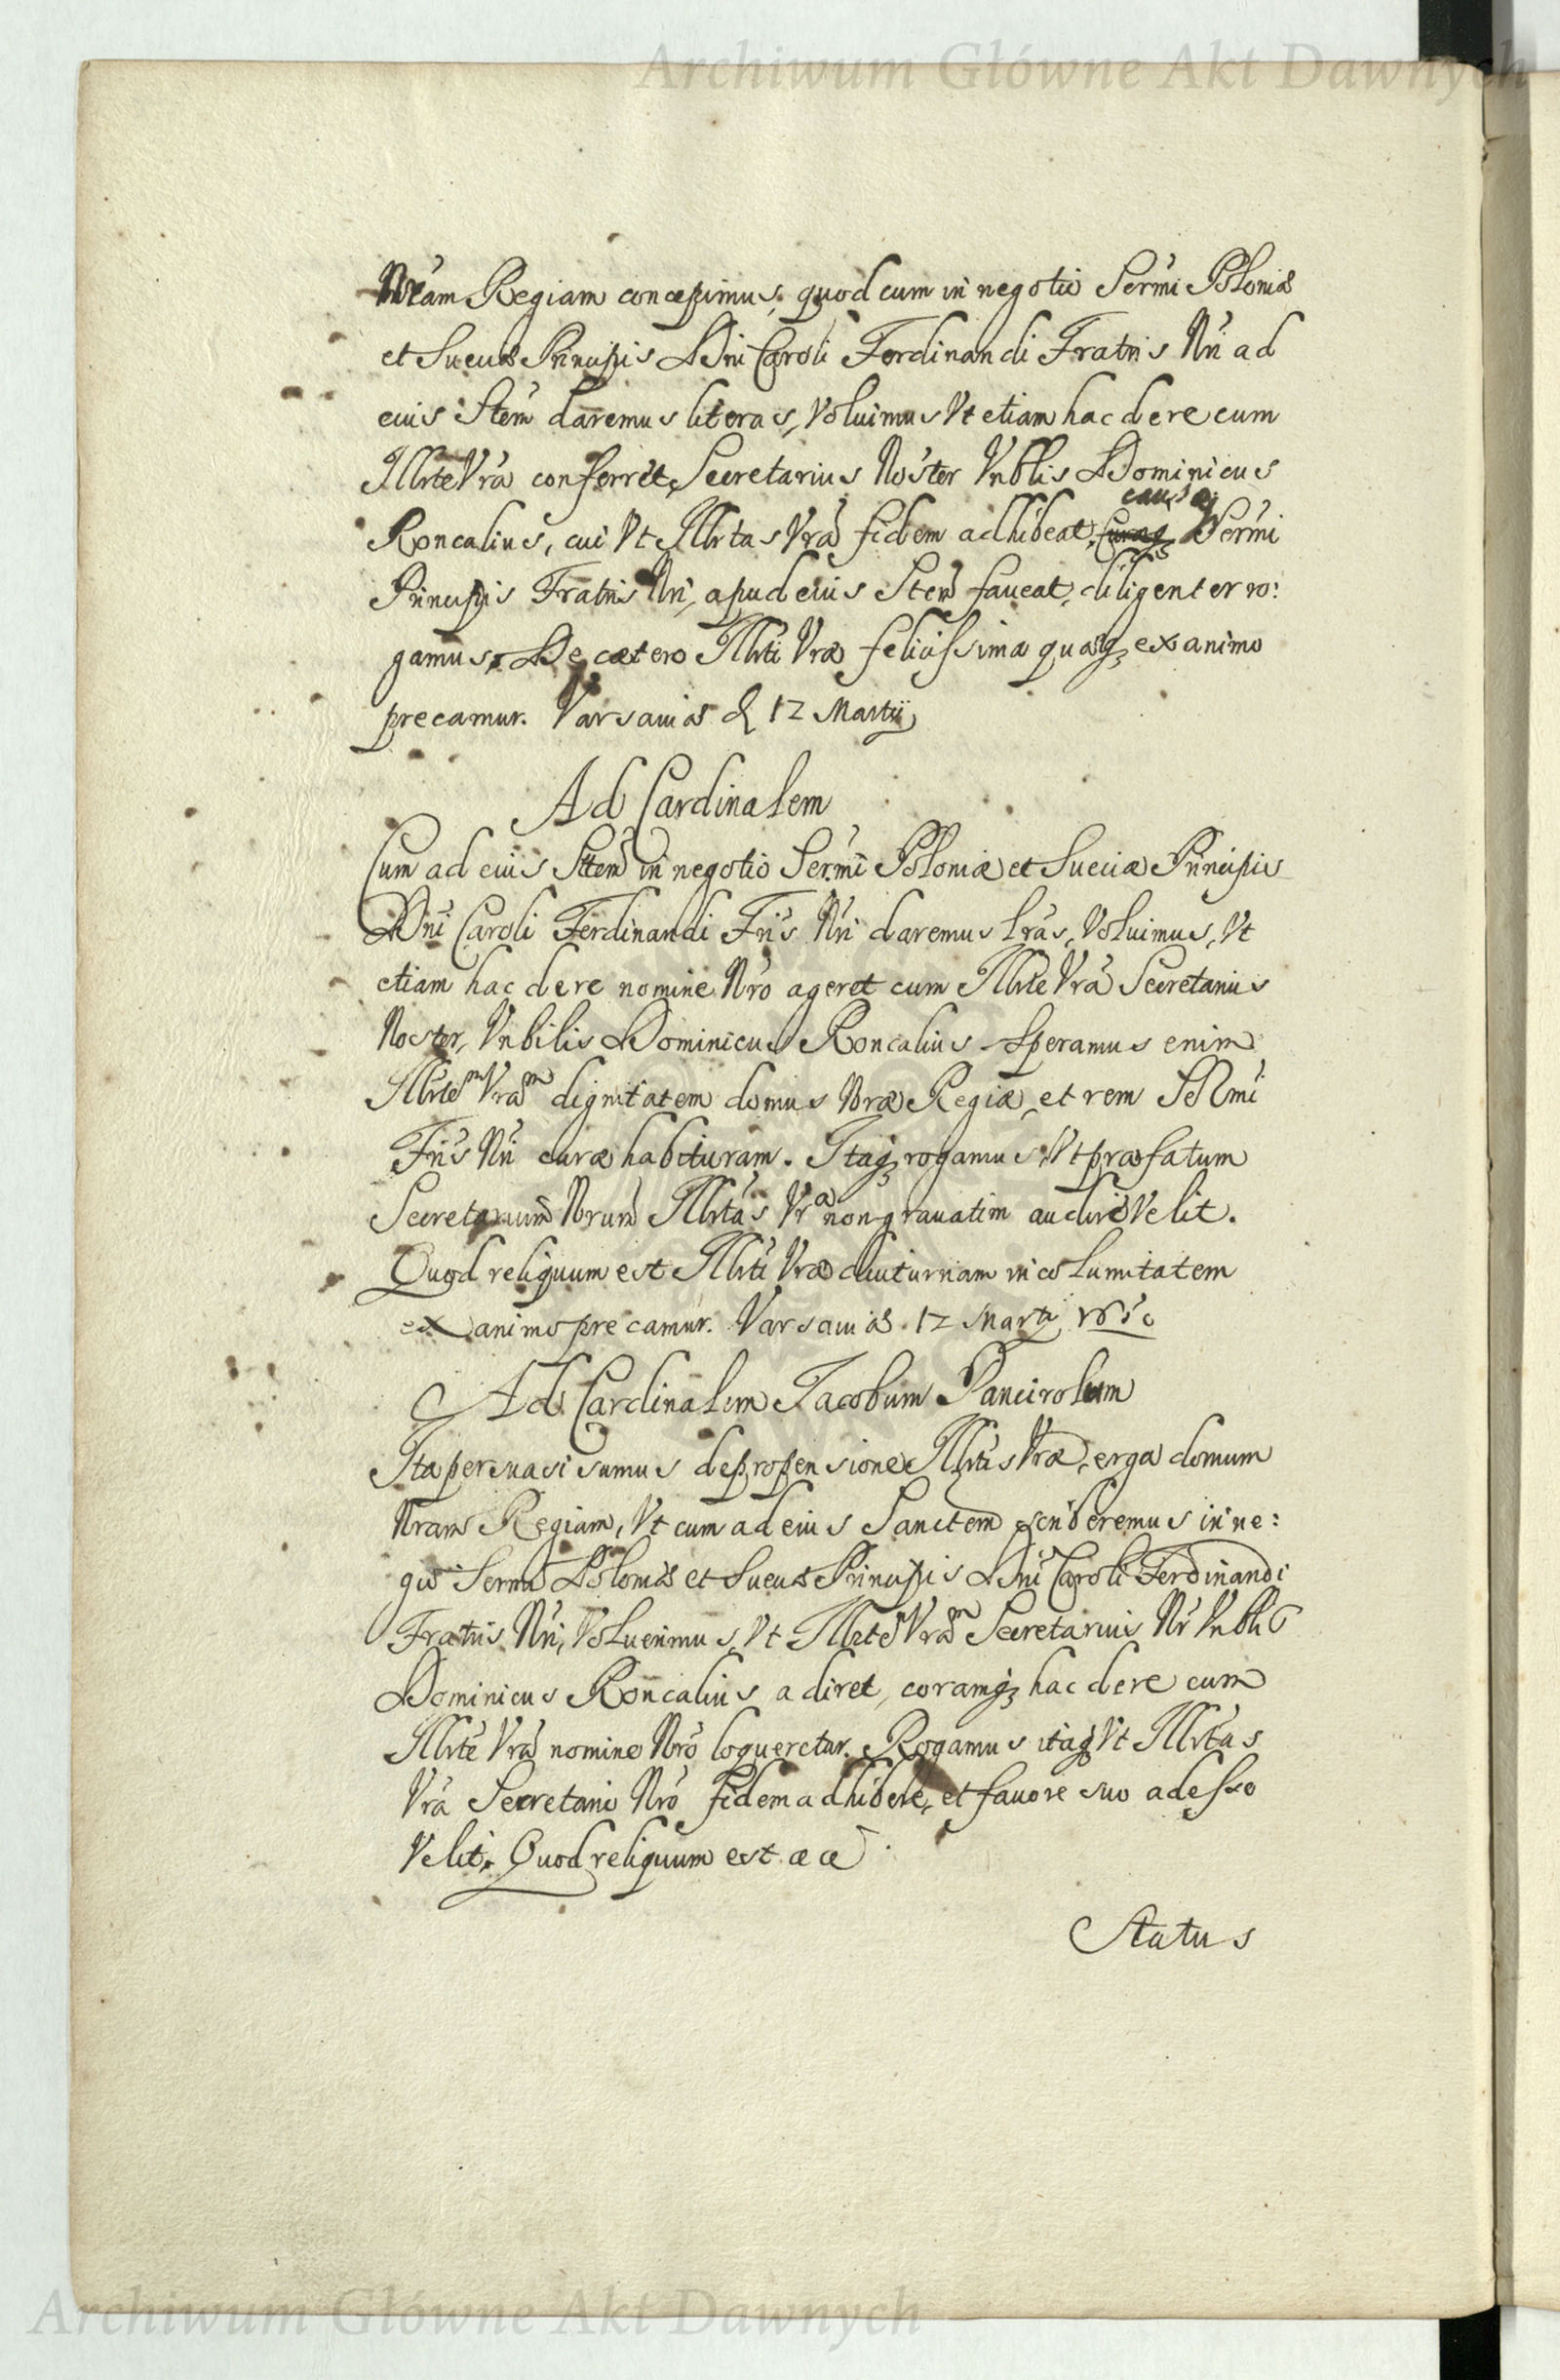 Archiwum Główne Akt Dawnych
Nram Regiam concepimus, quod cum in negotio Sermi Poloniæ
et Sueciæ Principis Dni Caroli Ferdinandi Fratris Nri ad
eius Stem daremus literas, Voluimus Vt etiam hac de re cum
Illrte Vra conferret, Secretarius Noster Vnblis Dominicus
Roncalius, cui Vt Illrtas Vra fidem adhibeat, causæq; Sermi
Principis Fratris Nri, apud eius Stem faueat, diligenter ro:
gamus. De cætero Illrti Vræ felicissima quæq; ex animo
precamur. Varsauiæ d 12 Martij
Ad Cardinalem
Cum ad eius Sttem in negotio Sermi Poloniæ et Sueciæ Principis
Dni Caroli Ferdinandi Fris Nri daremus lras, Voluimus, Vt
etiam hac de re nomine Nro ageret cum Illrte Vra Secretarius
Noster, Vnbilis Dominicus Roncalius. Speramus enim
Illrtem Vram dignitatem domus Nræ Regiæ, et rem Sermi
Fris Nri curæ habituram. Itaq; rogamus, Vt præfatum
Secretarium Nrum Illrtas Vra non grauatim audire Velit.
Quod reliquum est Illrti Vræ diuturnam incolumitatem
ex animo precamur. Varsauiæ. 12 Marti 1650
Ad Cardinalem Jacobum Pancirolum
Ita persuasi sumus de propensione Illrtis Vræ, erga domum
Nram Regiam, Vt cum ad eius Sanctem scriberemus in ne:
gio Sermi Poloniæ et Sueciæ Principis Dni Caroli Ferdinandi
Fratris Nri, Voluerimus, Vt Illrtem Vram Secretarius Nr Vnblis
Dominicus Roncalius adiret, coramq; hac de re cum
Illrte Vra nomine Nro loqueretur. Rogamus itaq; Vt Illrtas
Vra Secretario Nro fidem adhibere, et fauore suo adesse
Velit. Quod reliquum est æ æ
Status
Archiwum Główne Akt Dawnych